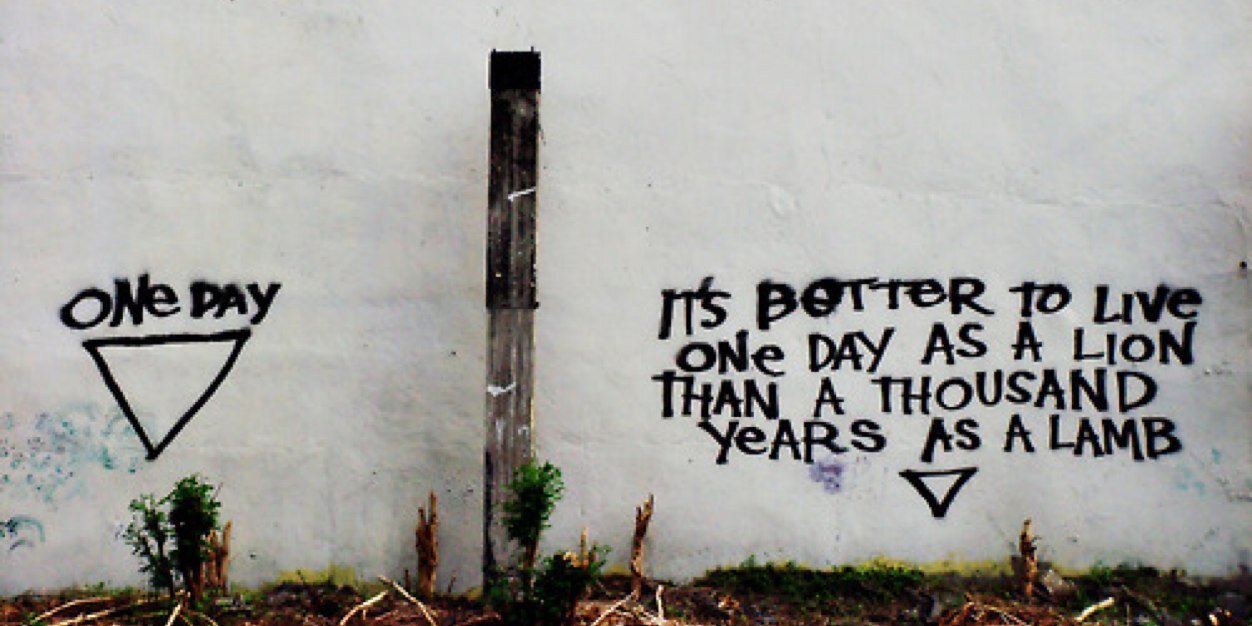 ONe DAY
IT'S BOTTER TO LIVe
ONe DAY AS A LION
THAN A THOUSAND
YeARS AS A LAMB